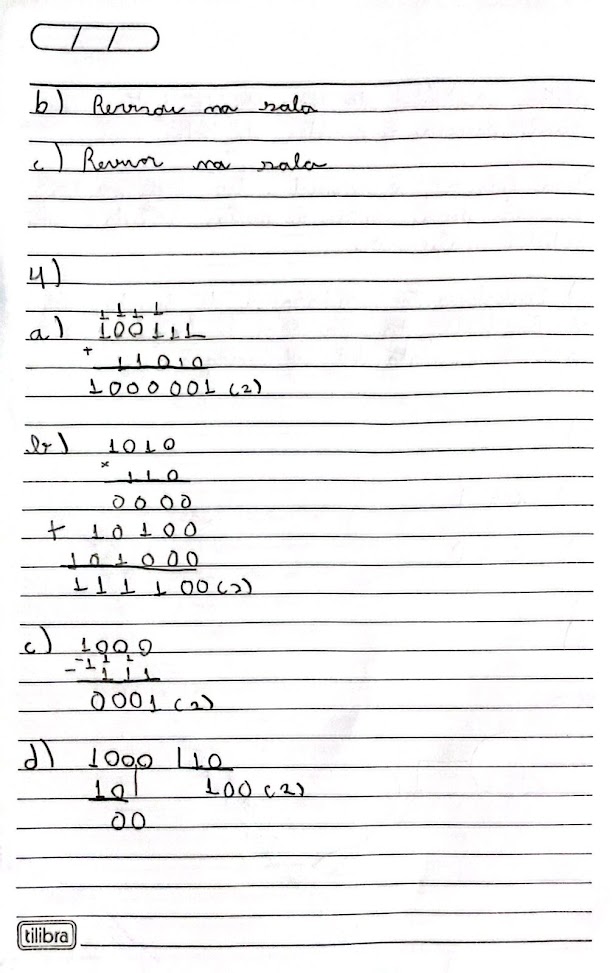 b) Revisar na sala
c) Revisar na sala
4)
1 1 1 1
a) 100111
+ 11010
1000001 (2)
b) 1010
x 110
0000
+ 10100
101000
111100 (2)
c) 1000
-1 1 1
- 111
0001 (2)
d) 1000 | 10
10 100 (2)
00
tilibra